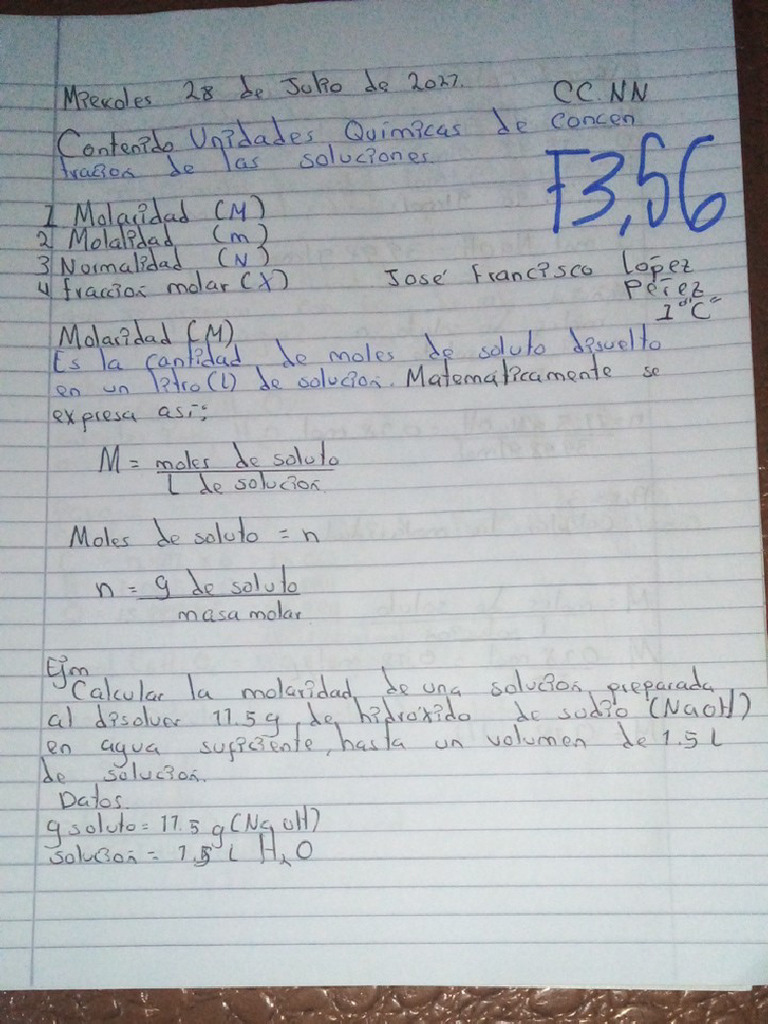 Miercoles 28 de Julio de 2027. CC.NN
Contenido Unidades Quimicas de concen
tracion de las soluciones.
F3,56
1 Molaridad (M)
2 Molalidad (m)
3 Normalidad (N)
4 fraccion molar (X) José Francisco López
Pérez
1°"C"
Molaridad (M)
Es la cantidad de moles de soluto disuelto
en un litro (L) de solucion. Matemáticamente se
expresa así;
M = moles de soluto
L de solucion.
Moles de soluto = n
n = g de soluto
masa molar.
Ejm
Calcular la molaridad, de una solucion, preparada,
al disolver 11.5 g de hidróxido de sodio (NaOH)
en agua suficiente, hasta un volumen de 1.5 L
de solucion.
Datos.
g soluto = 11.5 g (NaOH)
solucion = 1.5 L H₂O